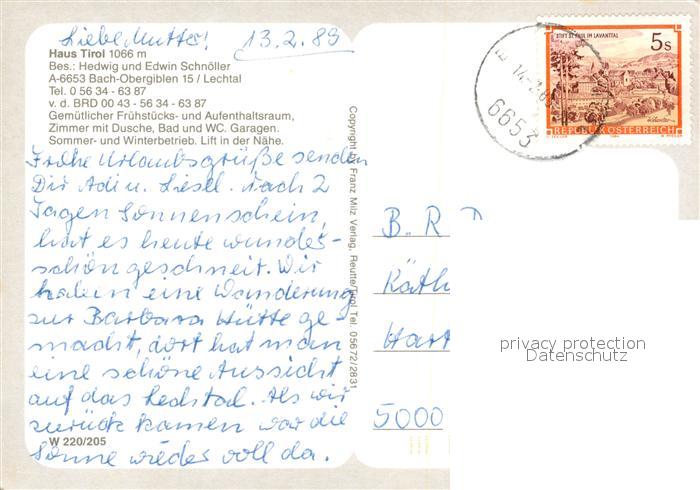 Liebe Mutter! 13.2.89
Haus Tirol 1066 m
Bes.: Hedwig und Edwin Schnöller
A-6653 Bach-Obergiblen 15 / Lechtal
Tel. 0 56 34 - 63 87
v. d. BRD 00 43 - 56 34 - 63 87
Gemütlicher Frühstücks- und Aufenthaltsraum,
Zimmer mit Dusche, Bad und WC. Garagen.
Sommer- und Winterbetrieb. Lift in der Nähe.
Frohe Urlaubsgrüße senden
Dir Adi u. Liesl. Nach 2
Tagen Sonnenschein,
hat es heute wunder-
schön geschneit. Wir
haben eine Wanderung
zur Barbara Hütte ge-
macht, dort hat man
eine schöne Aussicht
auf das Lechtal. Als wir
zurück kamen war die
Sonne wieder voll da.
W 220/205
Copyright by Franz Milz Verlag, Reutte/Tirol Tel. 05672/2831
STIFT ST. PAUL IM LAVANTTAL
5 S
REPUBLIK ÖSTERREICH
6653
B. R. D
Käth
Hart
5000
privacy protection
Datenschutz